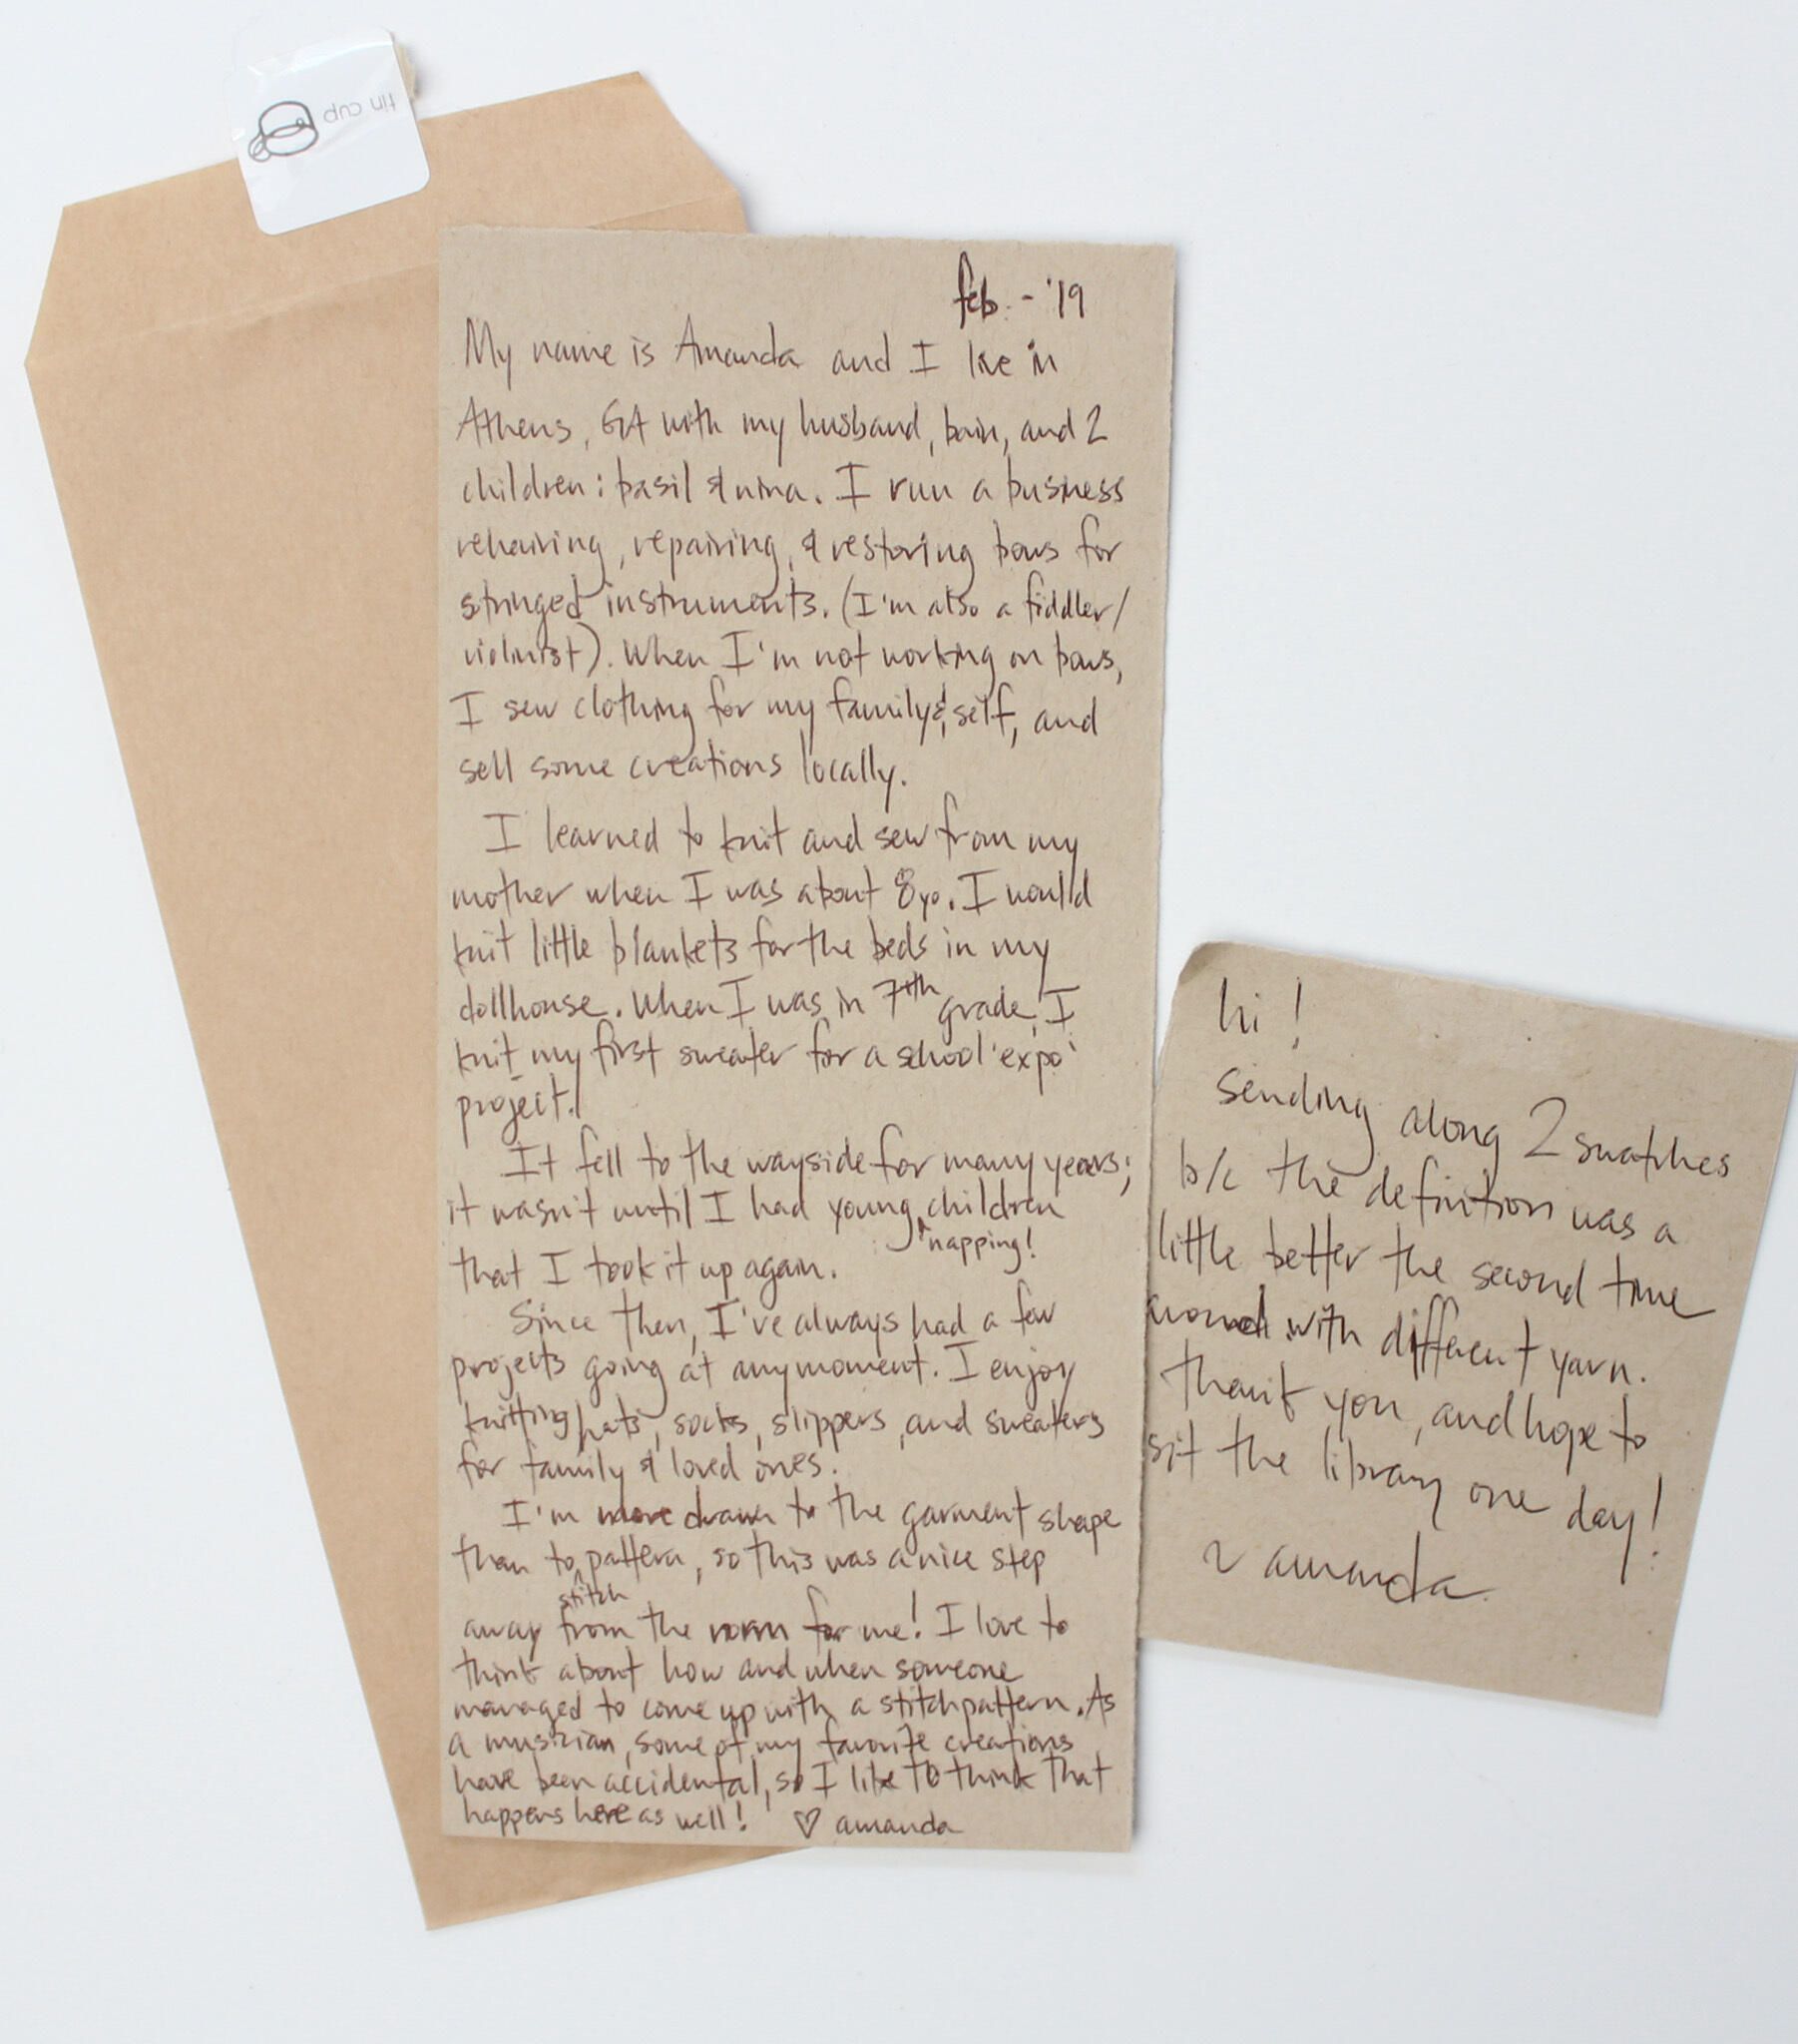 tin cup
feb. - '19
My name is Amanda and I live in
Athens, GA with my husband, bain, and 2
children: basil & nina. I run a business
rehairing, repairing, & restoring bows for
stringed instruments. (I'm also a fiddler/
violinist). When I'm not working on bows,
I sew clothing for my family & self, and
sell some creations locally.
I learned to knit and sew from my
mother when I was about 8yo. I would
knit little blankets for the beds in my
dollhouse. When I was in 7th grade, I
knit my first sweater for a school 'expo'
project.
It fell to the wayside for many years;
it wasn't until I had young children
napping!
that I took it up again.
Since then, I've always had a few
projects going at any moment. I enjoy
knitting hats, socks, slippers, and sweaters
for family & loved ones.
I'm more drawn to the garment shape
than to pattern, so this was a nice step
stitch
away from the norm for me! I love to
think about how and when someone
managed to come up with a stitch pattern. As
a musician, some of my favorite creations
have been accidental, so I like to think that
happens here as well! ♡ amanda
hi!
sending along 2 swatches
b/c the definition was a
little better the second time
around with different yarn.
thank you, and hope to
sit the library one day!
~ amanda